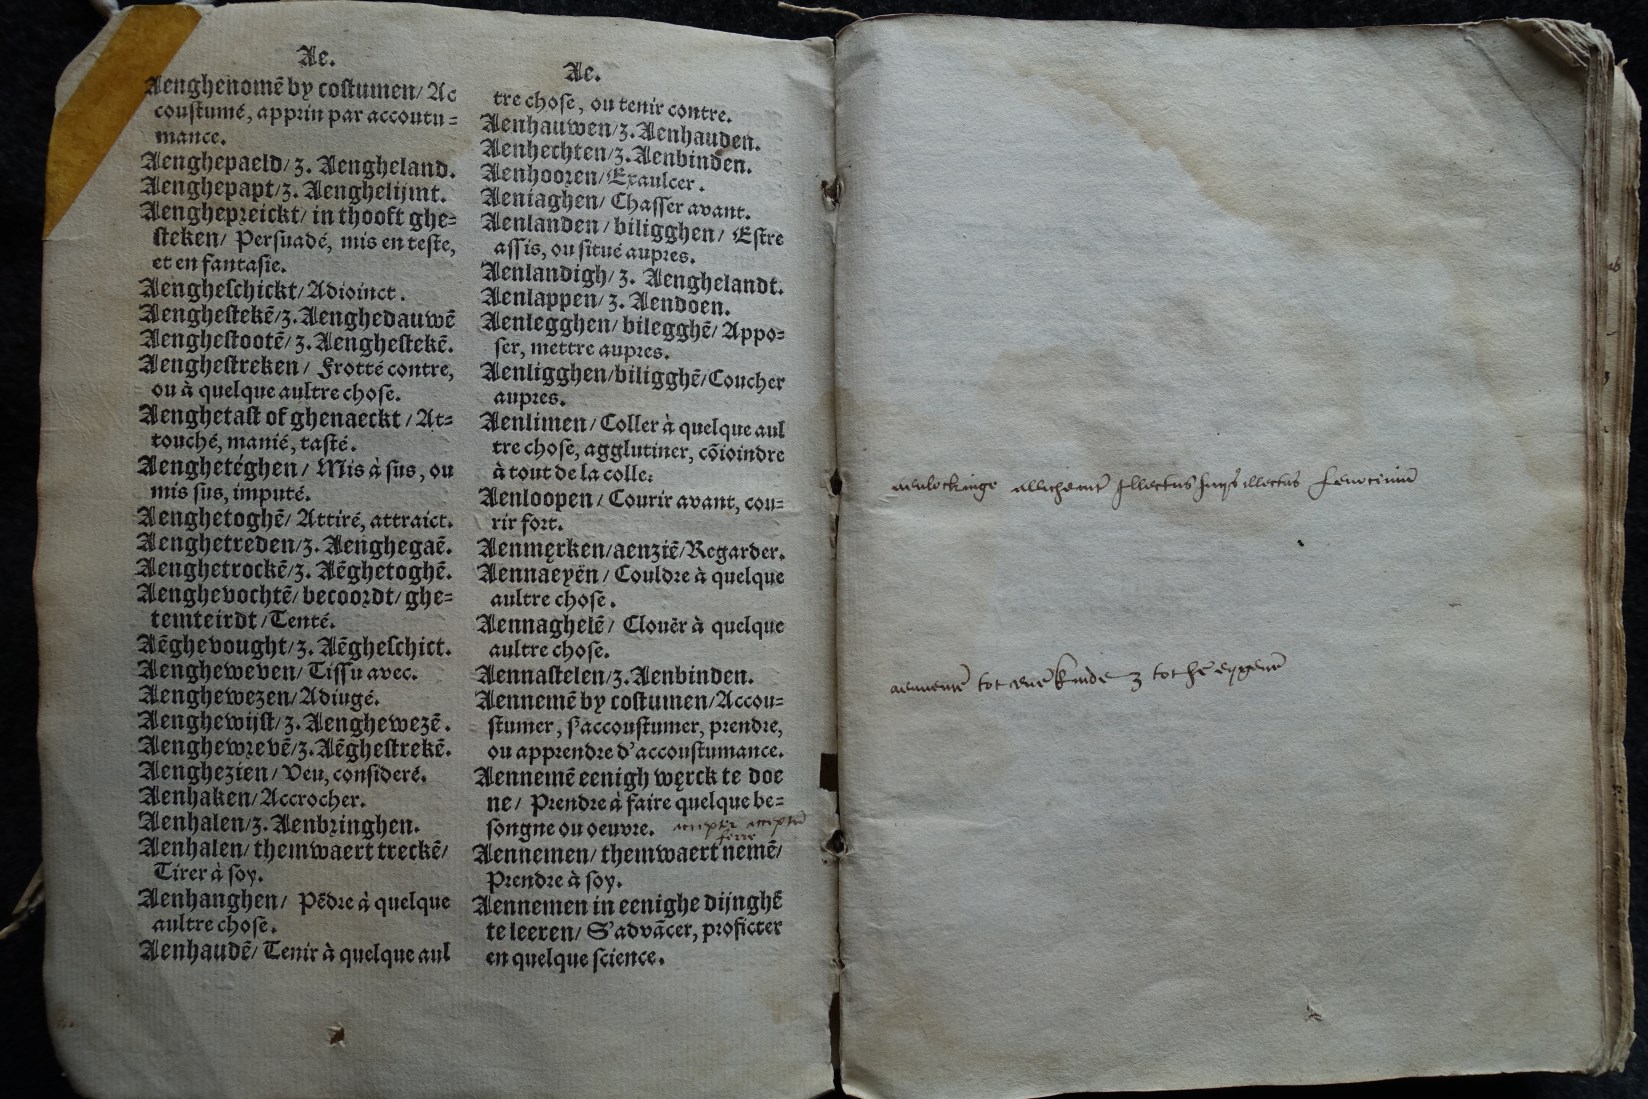 Ae.
Aenghenomē by costumen/ Ac
coustumé, apprin par accoutu=
mance.
Aenghepaeld/ z. Aengheland.
Aenghepapt/ z. Aenghelijmt.
Aenghepreickt/ in thooft ghe=
steken/ Persuadé, mis en teste,
et en fantasie.
Aengheschickt/ Adioinct.
Aenghestekē/ z. Aenghedauwē
Aenghestootē/ z. Aenghestekē.
Aenghestreken/ Frotté contre,
ou à quelque aultre chose.
Aenghetast of ghenaeckt/ At=
touché, manié, tasté.
Aenghetéghen/ Mis à sus, ou
mis sus, imputé.
Aenghetoghē/ Attiré, attraict.
Aenghetreden/ z. Aenghegaē.
Aenghetrockē/ z. Aēghetoghē.
Aenghevochtē/ becoordt/ ghe=
temteirdt/ Tenté.
Aēghevought/ z. Aēgheschict.
Aengheweven/ Tissu avec.
Aenghewezen/ Adiugé.
Aenghewijst/ z. Aenghewezē.
Aenghewrevē/ z. Aēghestrekē.
Aenghezien/ Veu, consideré.
Aenhaken/ Accrocher.
Aenhalen/ z. Aenbringhen.
Aenhalen/ themwaert treckē/
Tirer à soy.
Aenhanghen/ Pēdre à quelque
aultre chose.
Aenhaudē/ Tenir à quelque aul
Ae.
tre chose, ou tenir contre.
Aenhauwen/ z. Aenhauden.
Aenhechten/ z. Aenbinden.
Aenhooren/ Exaulcer.
Aeniaghen/ Chasser avant.
Aenlanden/ biligghen/ Estre
assis, ou situé aupres.
Aenlandigh/ z. Aenghelandt.
Aenlappen/ z. Aendoen.
Aenlegghen/ bilegghē/ Appo=
ser, mettre aupres.
Aenligghen/ biligghē/ Coucher
aupres.
Aenlimen/ Coller à quelque aul
tre chose, agglutiner, cōioindre
à tout de la colle.
Aenloopen/ Courir avant, cou=
rir fort.
Aenmęrken/ aenziē/ Regarder.
Aennaeyën/ Couldre à quelque
aultre chose.
Aennaghelē/ Clouēr à quelque
aultre chose.
Aennastelen/ z. Aenbinden.
Aennemē by costumen/ Accou=
stumer, s'accoustumer, prendre,
ou apprendre d'accoustumance.
Aennemē eenigh węrck te doe
ne/ Prendre à faire quelque be=
songne ou oeuvre.
Aennemen/ themwaert nemē/
Prendre à soy.
Aennemen in eenighe dijnghē
te leeren/ S'advācer, proficter
en quelque science.
aenlockinge illectus illectus
aennemē tot kinde z tot